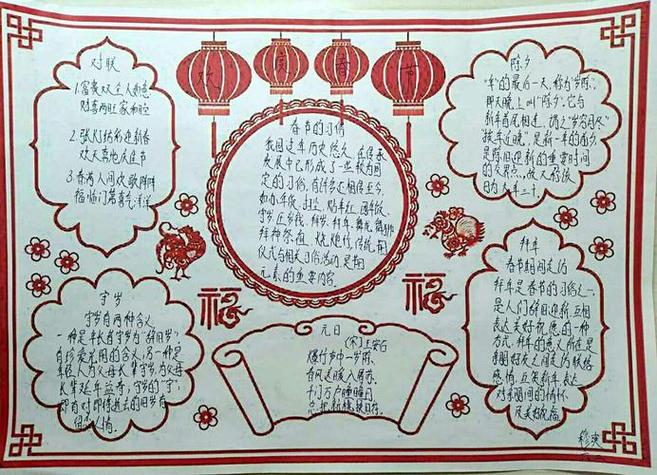 欢度春节
对联
1.富贵双全人如意
财喜两旺家和睦
2.张灯结彩迎新春
欢天喜地庆佳节
3.春满人间欢歌阵阵
福临门第喜气洋洋
春节的习俗
我国过年历史悠久,在传承
发展中已形成了一些较为固
定的习俗,有许多还相传至今,
如办年货、扫尘、贴年红、团年饭、
守岁、压岁钱、拜岁、拜年、舞龙舞狮、
拜神祭祖、
仪式与相关习俗活动,是节日
元素的重要内容。
除夕
年的最后一天,称为“岁除”,
那天晚上叫“除夕”。它与
新年首尾相连,谓之“岁穷月尽”
是除旧迎新的重要时间
的交界点。故又称俗
日为大年三十。
守岁
守岁有两种含义
一种是年长者守岁为“辞旧岁”,
有珍爱光阴的含义;另一种是
年轻人为父母长辈守岁,为父母
长辈延年益寿,守岁的“守”,
即有对即将逝去的旧岁有
留恋之情。
福
福
元日
(宋)王安石
爆竹声中一岁除,
春风送暖入屠苏。
千门万户曈曈日,
总把新桃换旧符。
拜年
春节期间走访
拜年是春节的习俗之一,
是人们辞旧迎新、互相
表达美好祝愿的一种
方式。拜年的意义所在是
亲朋好友之间走访联络
感情、互贺新年,表达
对亲朋间的情怀